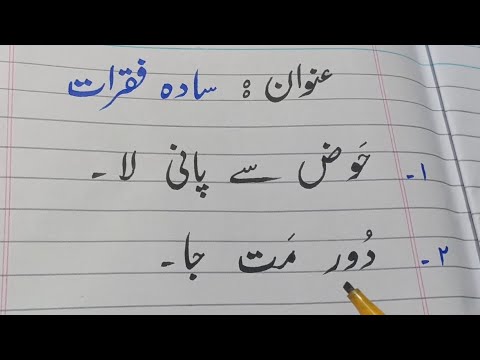 عنوان : سادہ فقرات
۱۔ حَوض سے پانی لا۔
۲۔ دُور مَت جا۔